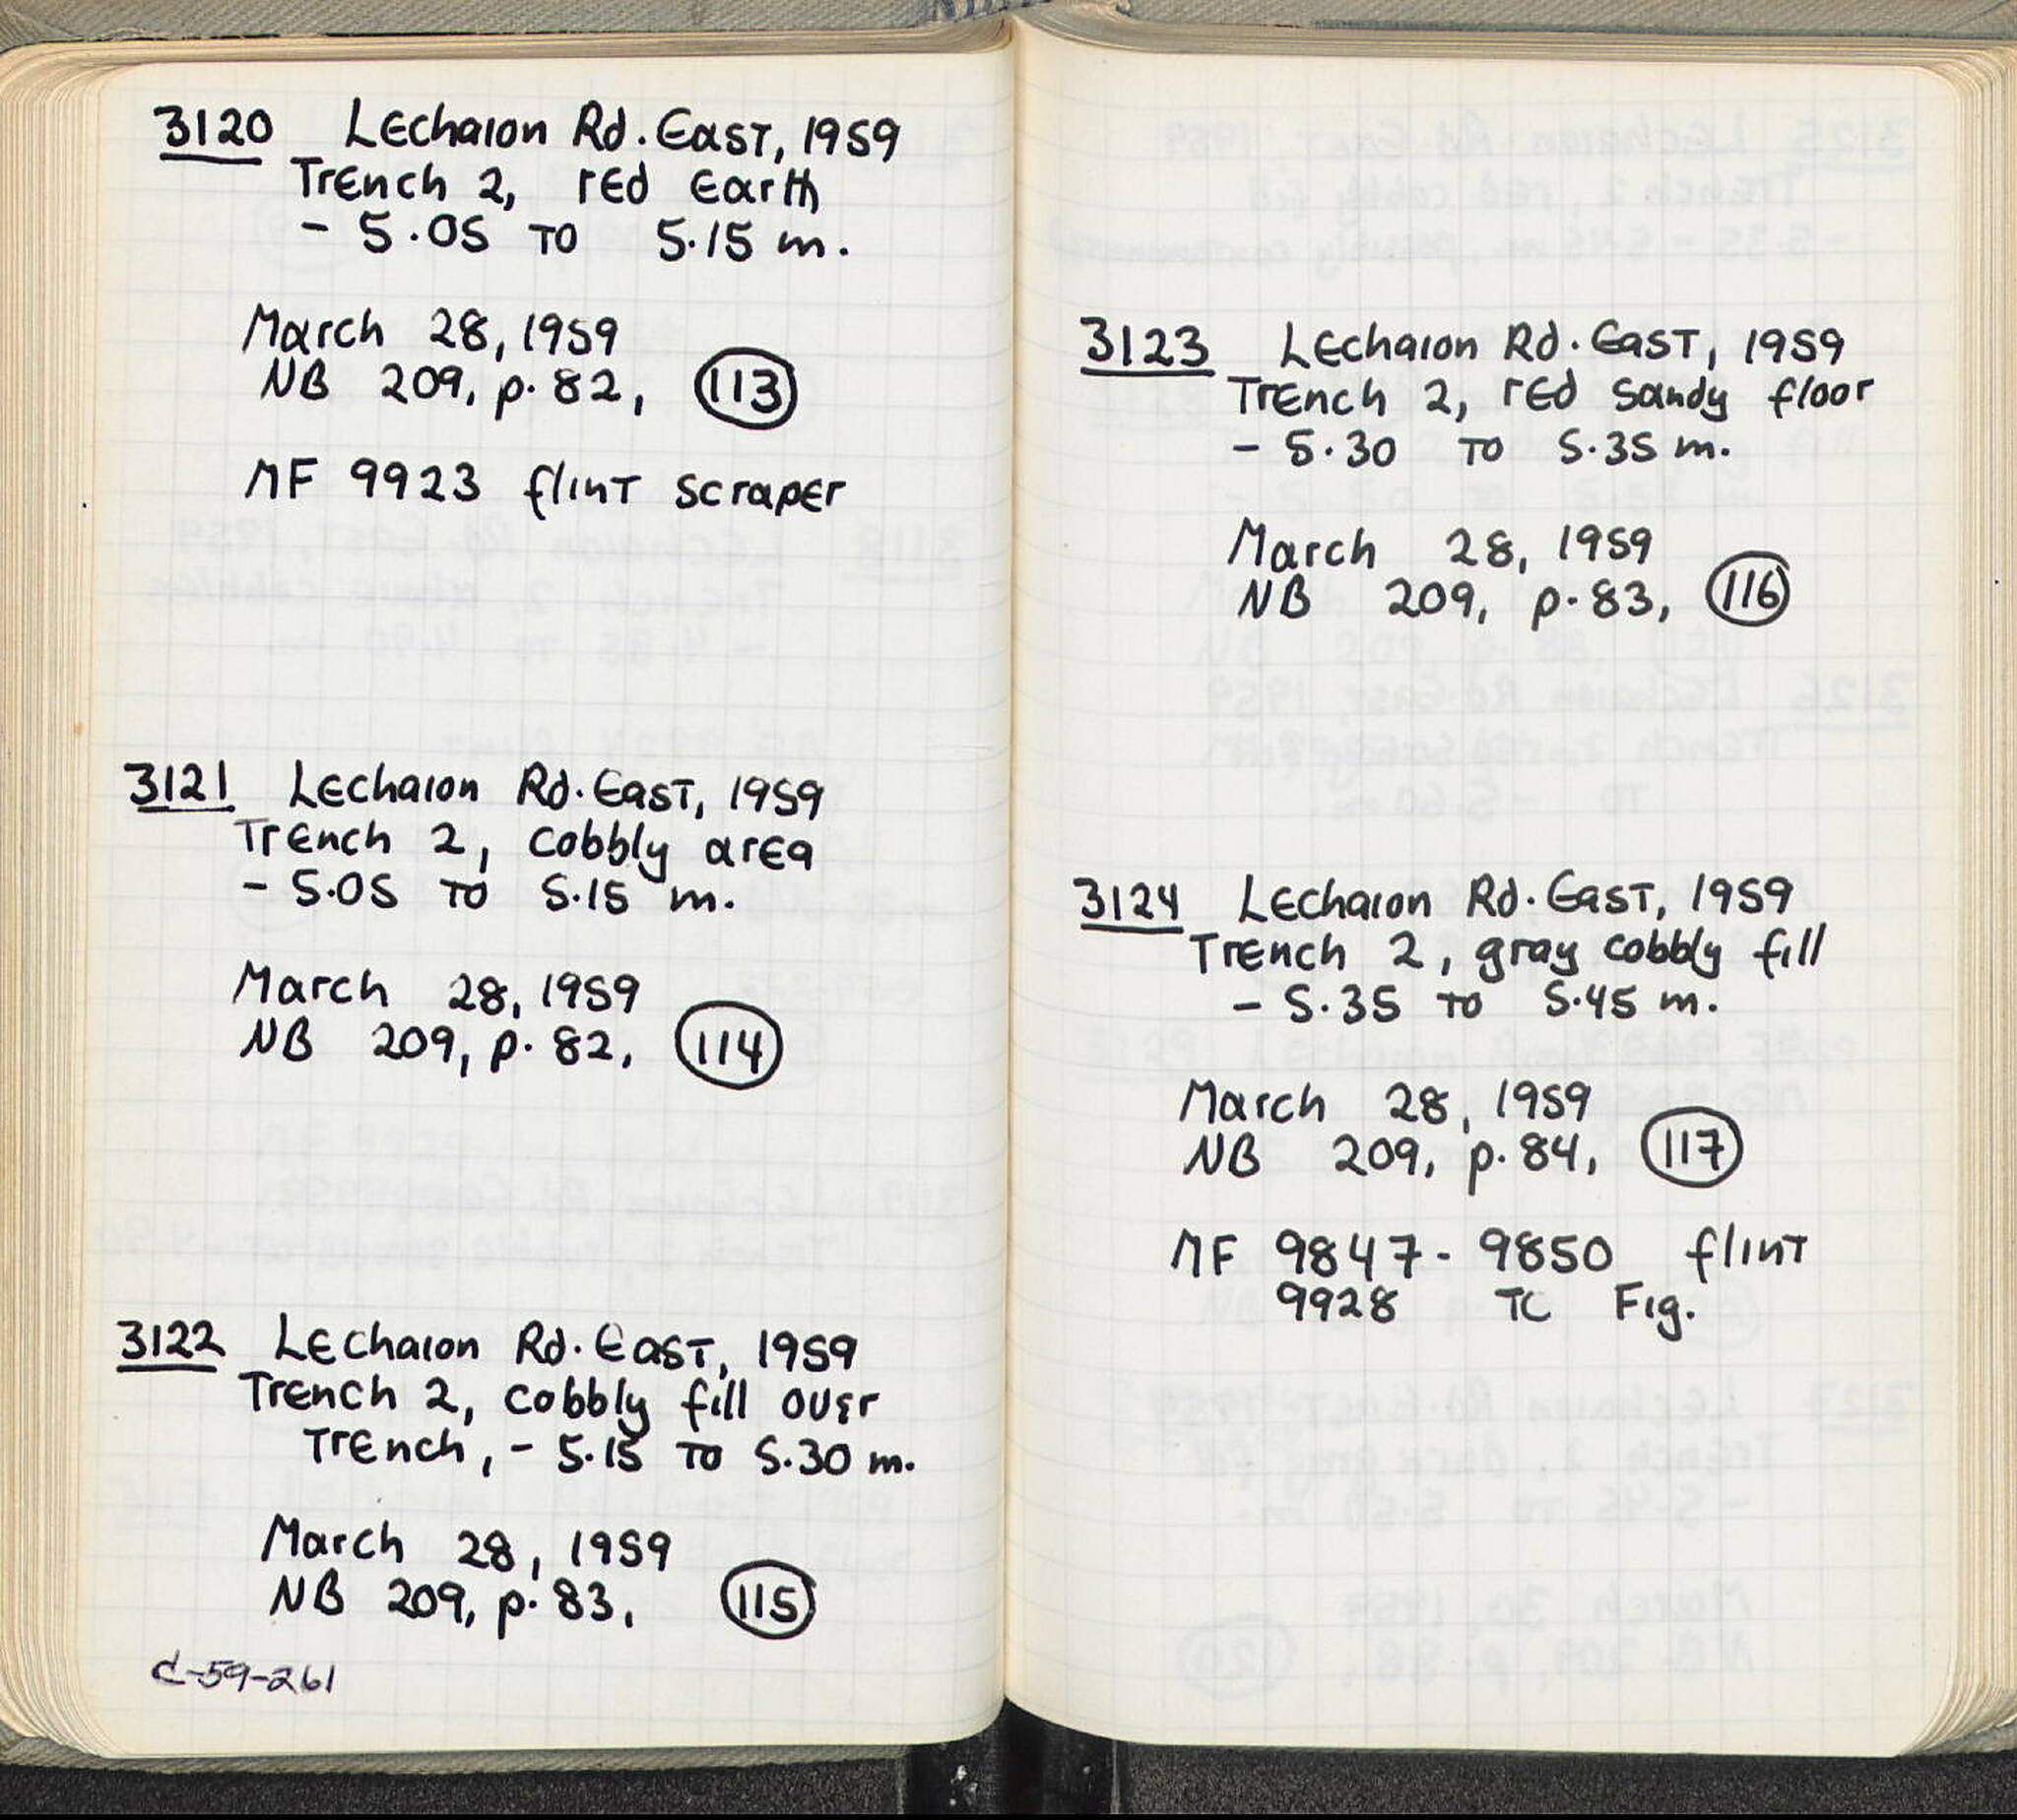 3120 Lechaion Rd. East, 1959
Trench 2, red earth
- 5.05 to 5.15 m.
March 28, 1959
NB 209, p. 82, 113
MF 9923 flint scraper
3121 Lechaion Rd. East, 1959
Trench 2, cobbly area
- 5.05 to 5.15 m.
March 28, 1959
NB 209, p. 82, 114
3122 Lechaion Rd. East, 1959
Trench 2, cobbly fill over
Trench, - 5.15 to 5.30 m.
March 28, 1959
NB 209, p. 83, 115
C-59-261
3123 Lechaion Rd. East, 1959
Trench 2, red sandy floor
- 5.30 to 5.35 m.
March 28, 1959
NB 209, p. 83, 116
3124 Lechaion Rd. East, 1959
Trench 2, gray cobbly fill
- 5.35 to 5.45 m.
March 28, 1959
NB 209, p. 84, 117
MF 9847 - 9850 flint
9928 TC Fig.